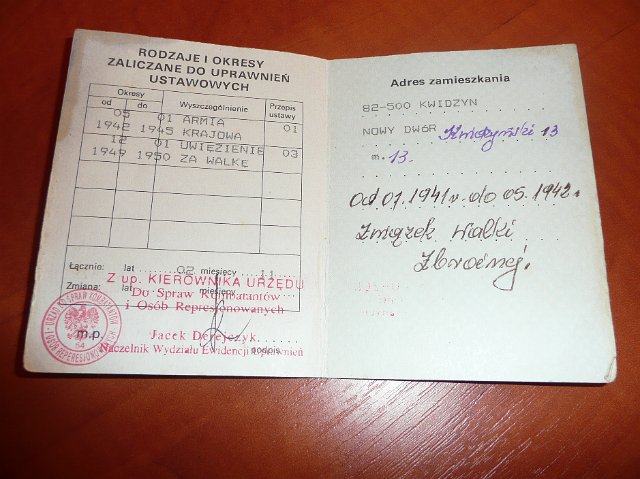 RODZAJE I OKRESY
ZALICZANE DO UPRAWNIEŃ
USTAWOWYCH
Okresy
od do Wyszczególnienie Przepis ustawy
05 01 ARMIA
1942 1945 KRAJOWA 01
12 01 UWIĘZIENIE
1949 1950 ZA WALKĘ 03
Łącznie: lat 02 miesięcy 11
Zmiana: lat miesięcy
Z up. KIEROWNIKA URZĘDU
Do Spraw Kombatantów
i Osób Represjonowanych
m.p.
Jacek Derejczyk
podpis
Naczelnik Wydziału Ewidencji Uprawnień
Adres zamieszkania
82-500 KWIDZYN
NOWY DWÓR Kwidzyński 13
m. 13.
od 01.1941 r. do 05.1942 r.
Związek Walki
Zbrojnej.